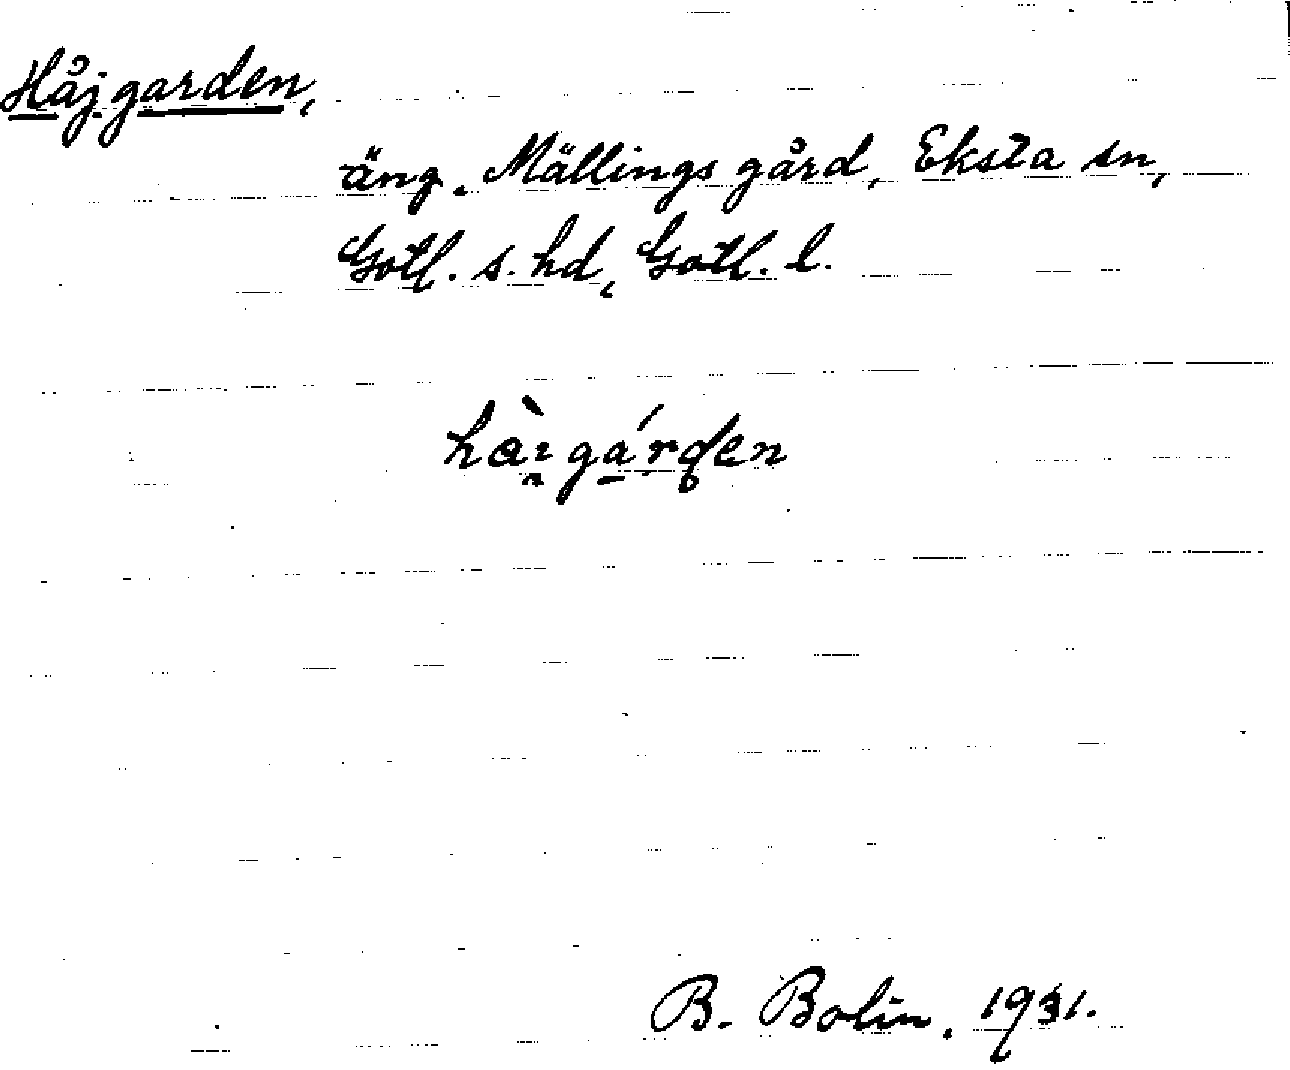 Håjgarden,
äng. Mällings gård, Eksta sn,
Gotl. s. hd, Gotl. l.
B. Bolin. 1931.